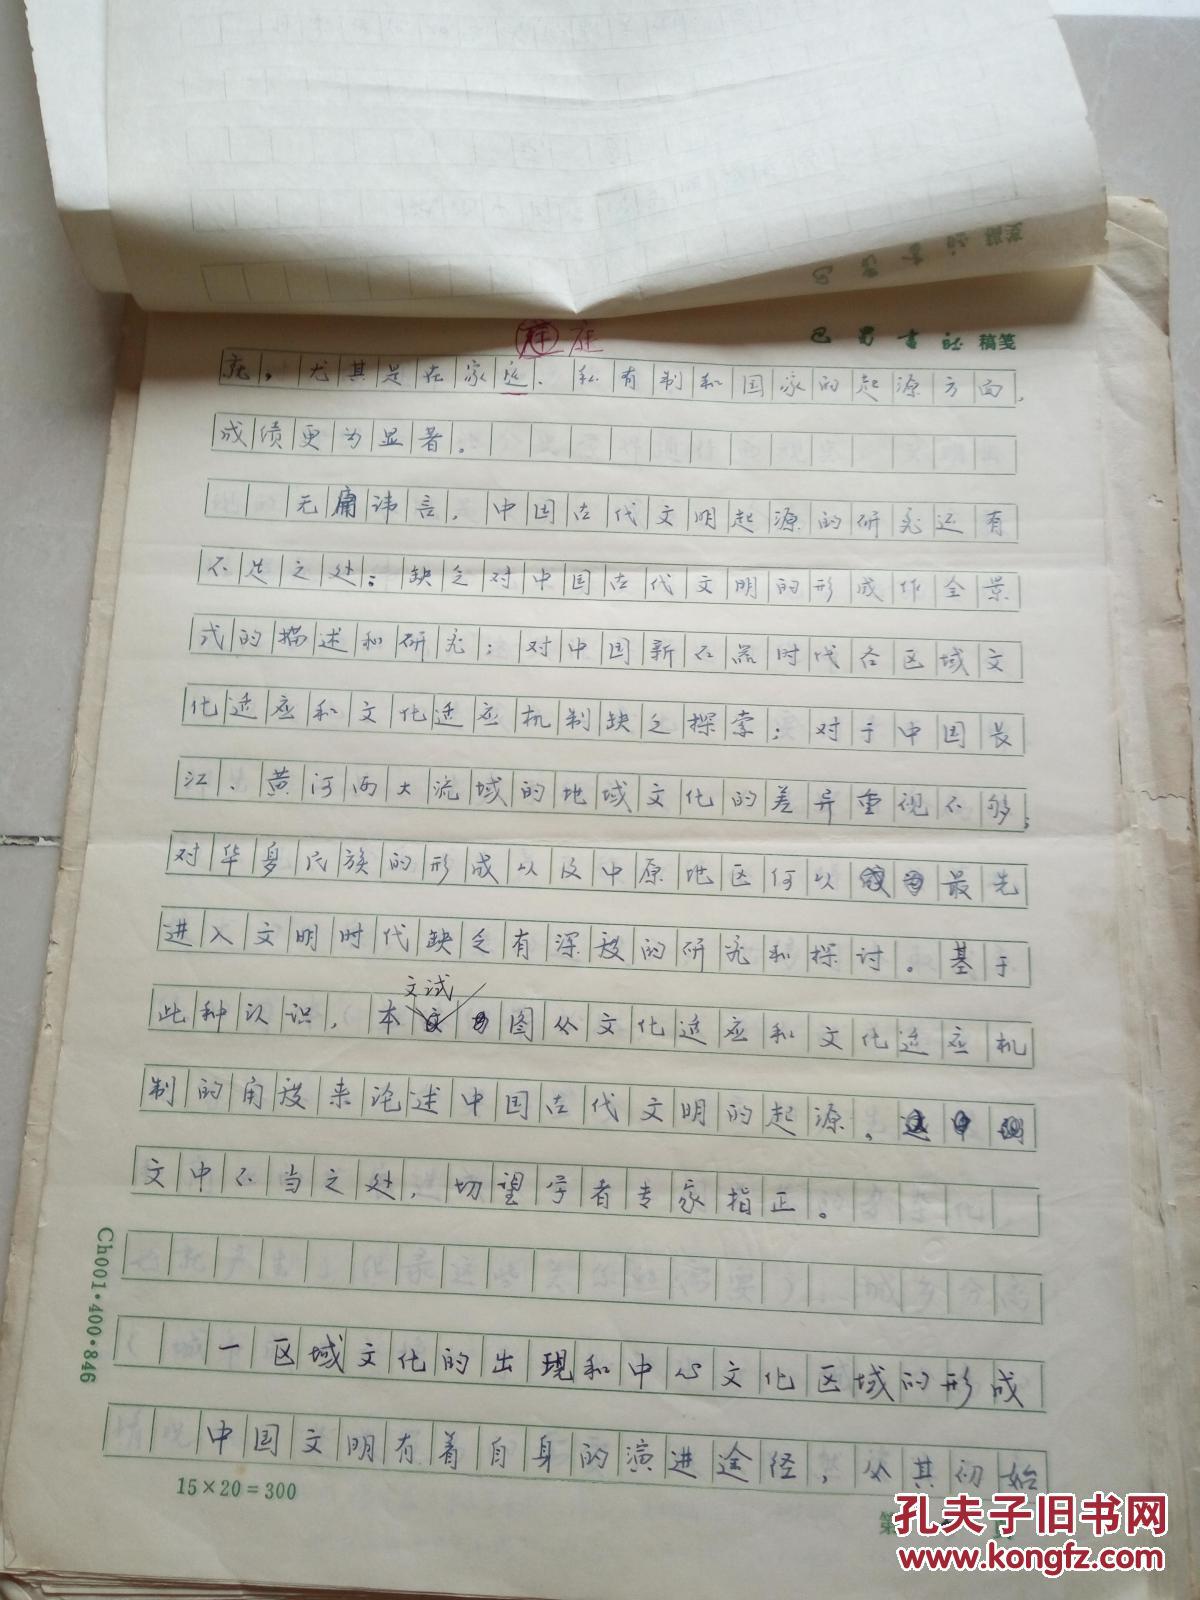 巴蜀书社稿笺
庭
就，尤其是在家庭、私有制和国家的起源方面，
成绩更为显著。
无庸讳言，中国古代文明起源的研究还有
不足之处：缺乏对中国古代文明的形成作全景
式的描述和研究；对中国新石器时代各区域文
化适应和文化适应机制缺乏探索；对于中国长
江、黄河两大流域的地域文化的差异重视不够；
对华夏民族的形成以及中原地区何以最先
进入文明时代缺乏有深度的研究和探讨。基于
文试
此种认识，本图从文化适应和文化适应机
制的角度来论述中国古代文明的起源，
文中不当之处，切望学者专家指正。
一区域文化的出现和中心文化区域的形成
中国文明有着自身的演进途径，从其初始
15×20=300
Ch001·400·846
第
孔夫子旧书网
www.kongfz.com